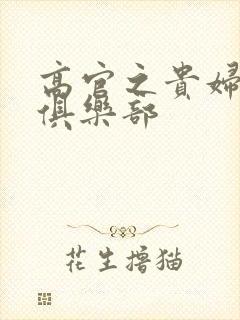 高官之貴婦
俱樂部
花生撸猫